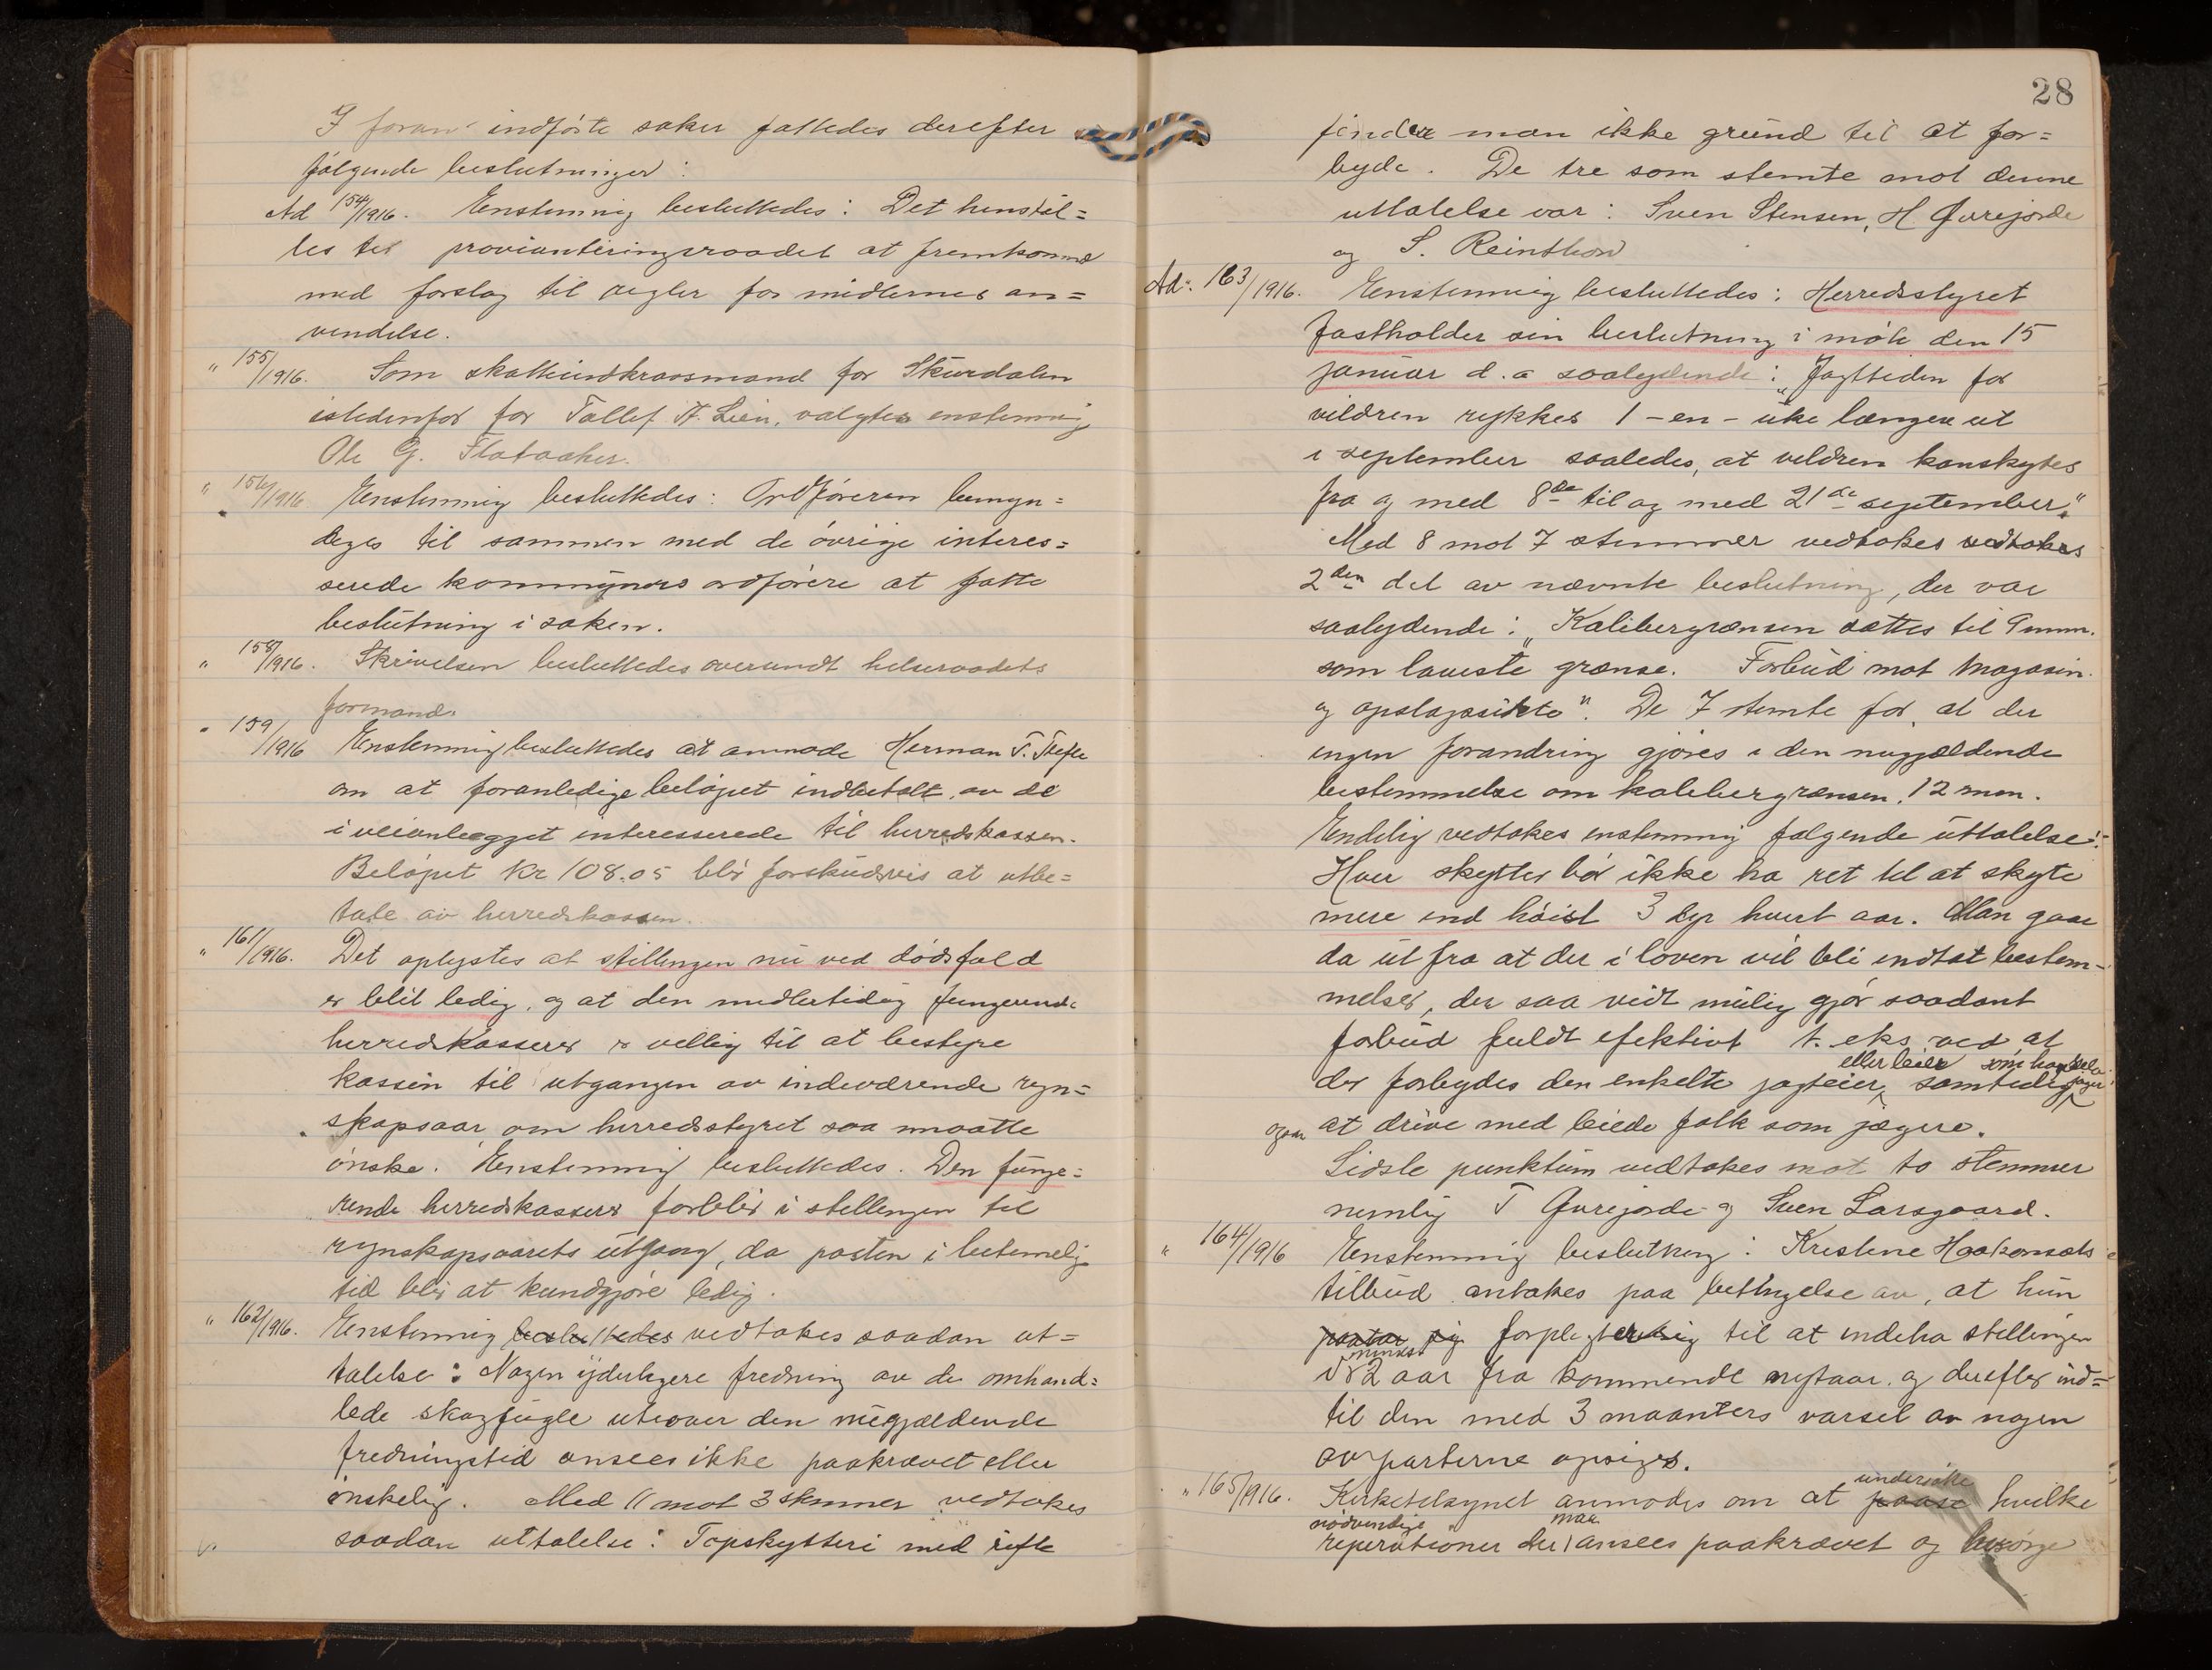 I foran indførte saker fattedes derefter
følgende beslutninger:
Ad 154/1916. Enstemmig besluttedes: Det henstil=
les til provianteringsraadet at fremkomme
med forslag til regler for midlernes an=
vendelse.
" 155/1916. Som skatteindkrævsmand for Skurdalen
istedenfor for Tollef A. Lien, valgtes enstemmig
Ole G. Flataaker.
" 156/1916 Enstemmig besluttedes: Ordføreren bemyn=
diges til sammen med de øvrige interes=
serede kommuners ordførere at fatte
beslutning i saken.
" 158/1916. Skrivelsen besluttedes oversendt helseraadets
formand.
" 159/1916 Enstemmig besluttedes at anmode Herman T.
om at foranledige beløpet indbetalt av de
i veianlægget interesserede til herredskassen.
Beløpet kr 108.05 blir forskudsvis at utbe=
tale av herredskassen.
" 161/1916. Det oplystes at stillingen nu ved dødsfald
er blit ledig, og at den midlertidig fungerende
herredskasserer er villig til at bestyre
kassen til utgangen av indeværende regn=
skapsaar om herredsstyret saa maatte
ønske. Enstemmig besluttedes. Den funge=
rende herredskasserer forblir i stillingen til
regnskapsaarets utgang, da posten i betimelig
tid blir at kundgjøre ledig.
" 162/1916. Enstemmig besluttedes vedtokes saadan ut=
talelse: Nogen yderligere fredning av de omhand=
lede skogfugle utover den nugjældende
fredningstid ansees ikke paakrævet eller
ønskelig. Med 11 mot 3 stemmer vedtokes
saadan uttalelse: Topskytteri med rifle
28
finder man ikke grund til at for=
byde. De tre som stemte mot denne
uttalelse var: Sven Stensen, H Gurejorde
og S. Reinthon
Ad: 163/1916. Enstemmig besluttedes: Herredsstyret
fastholder sin beslutning i møte den 15
januar d.a saalydende: "Jagttiden for
vildren rykkes 1 -en- uke længer ut
i september saaledes, at vildren kan skytes
fra og med 8de til og med 21de september."
Med 8 mot 7 stemmer vedtokes vedtokes
2den del av nævnte beslutning, der var
saalydende: "Kalibergrænsen sættes til 9 mm.
som laveste grænse. Forbud mot magasin
og opslagssikte". De 7 stemte for at der
ingen forandring gjøres i den nugjældende
bestemmelse om kalibergrænsen, 12 mm.
Endelig vedtokes enstemmig følgende uttalelse:
Hver skytter bør ikke ha ret til at skyte
mere end høist 3 dyr hvert aar. Man gaar
da ut fra at der i loven vil bli indtat bestem-
melser, der saa vidt mulig gjør saadant
forbud fuldt efektivt t. eks. ved at
eller leier som han selv
der forbydes den enkelte jagteier samtidig jager
ogsaa at drive med leiede folk som jægere.
Sidste punktum vedtokes mot to stemmer
nemlig T Gurejorde og Sven Larsgaard.
" 164/1916 Enstemmig beslutning: Kristine Haakonsets
tilbud antakes paa betingelse av, at hun
paatar sig forplegter sig til at indeha stillingen
mindst
i 2 aar fra kommende nytaar og derefter ind=
til den med 3 maaneters varsel av nogen
av parterne opsiges.
" 165/1916. Kirketilsynet anmodes om at paase undersøke hvilke
nødvendige maa
reperationer der ansees paakrævet og besørge